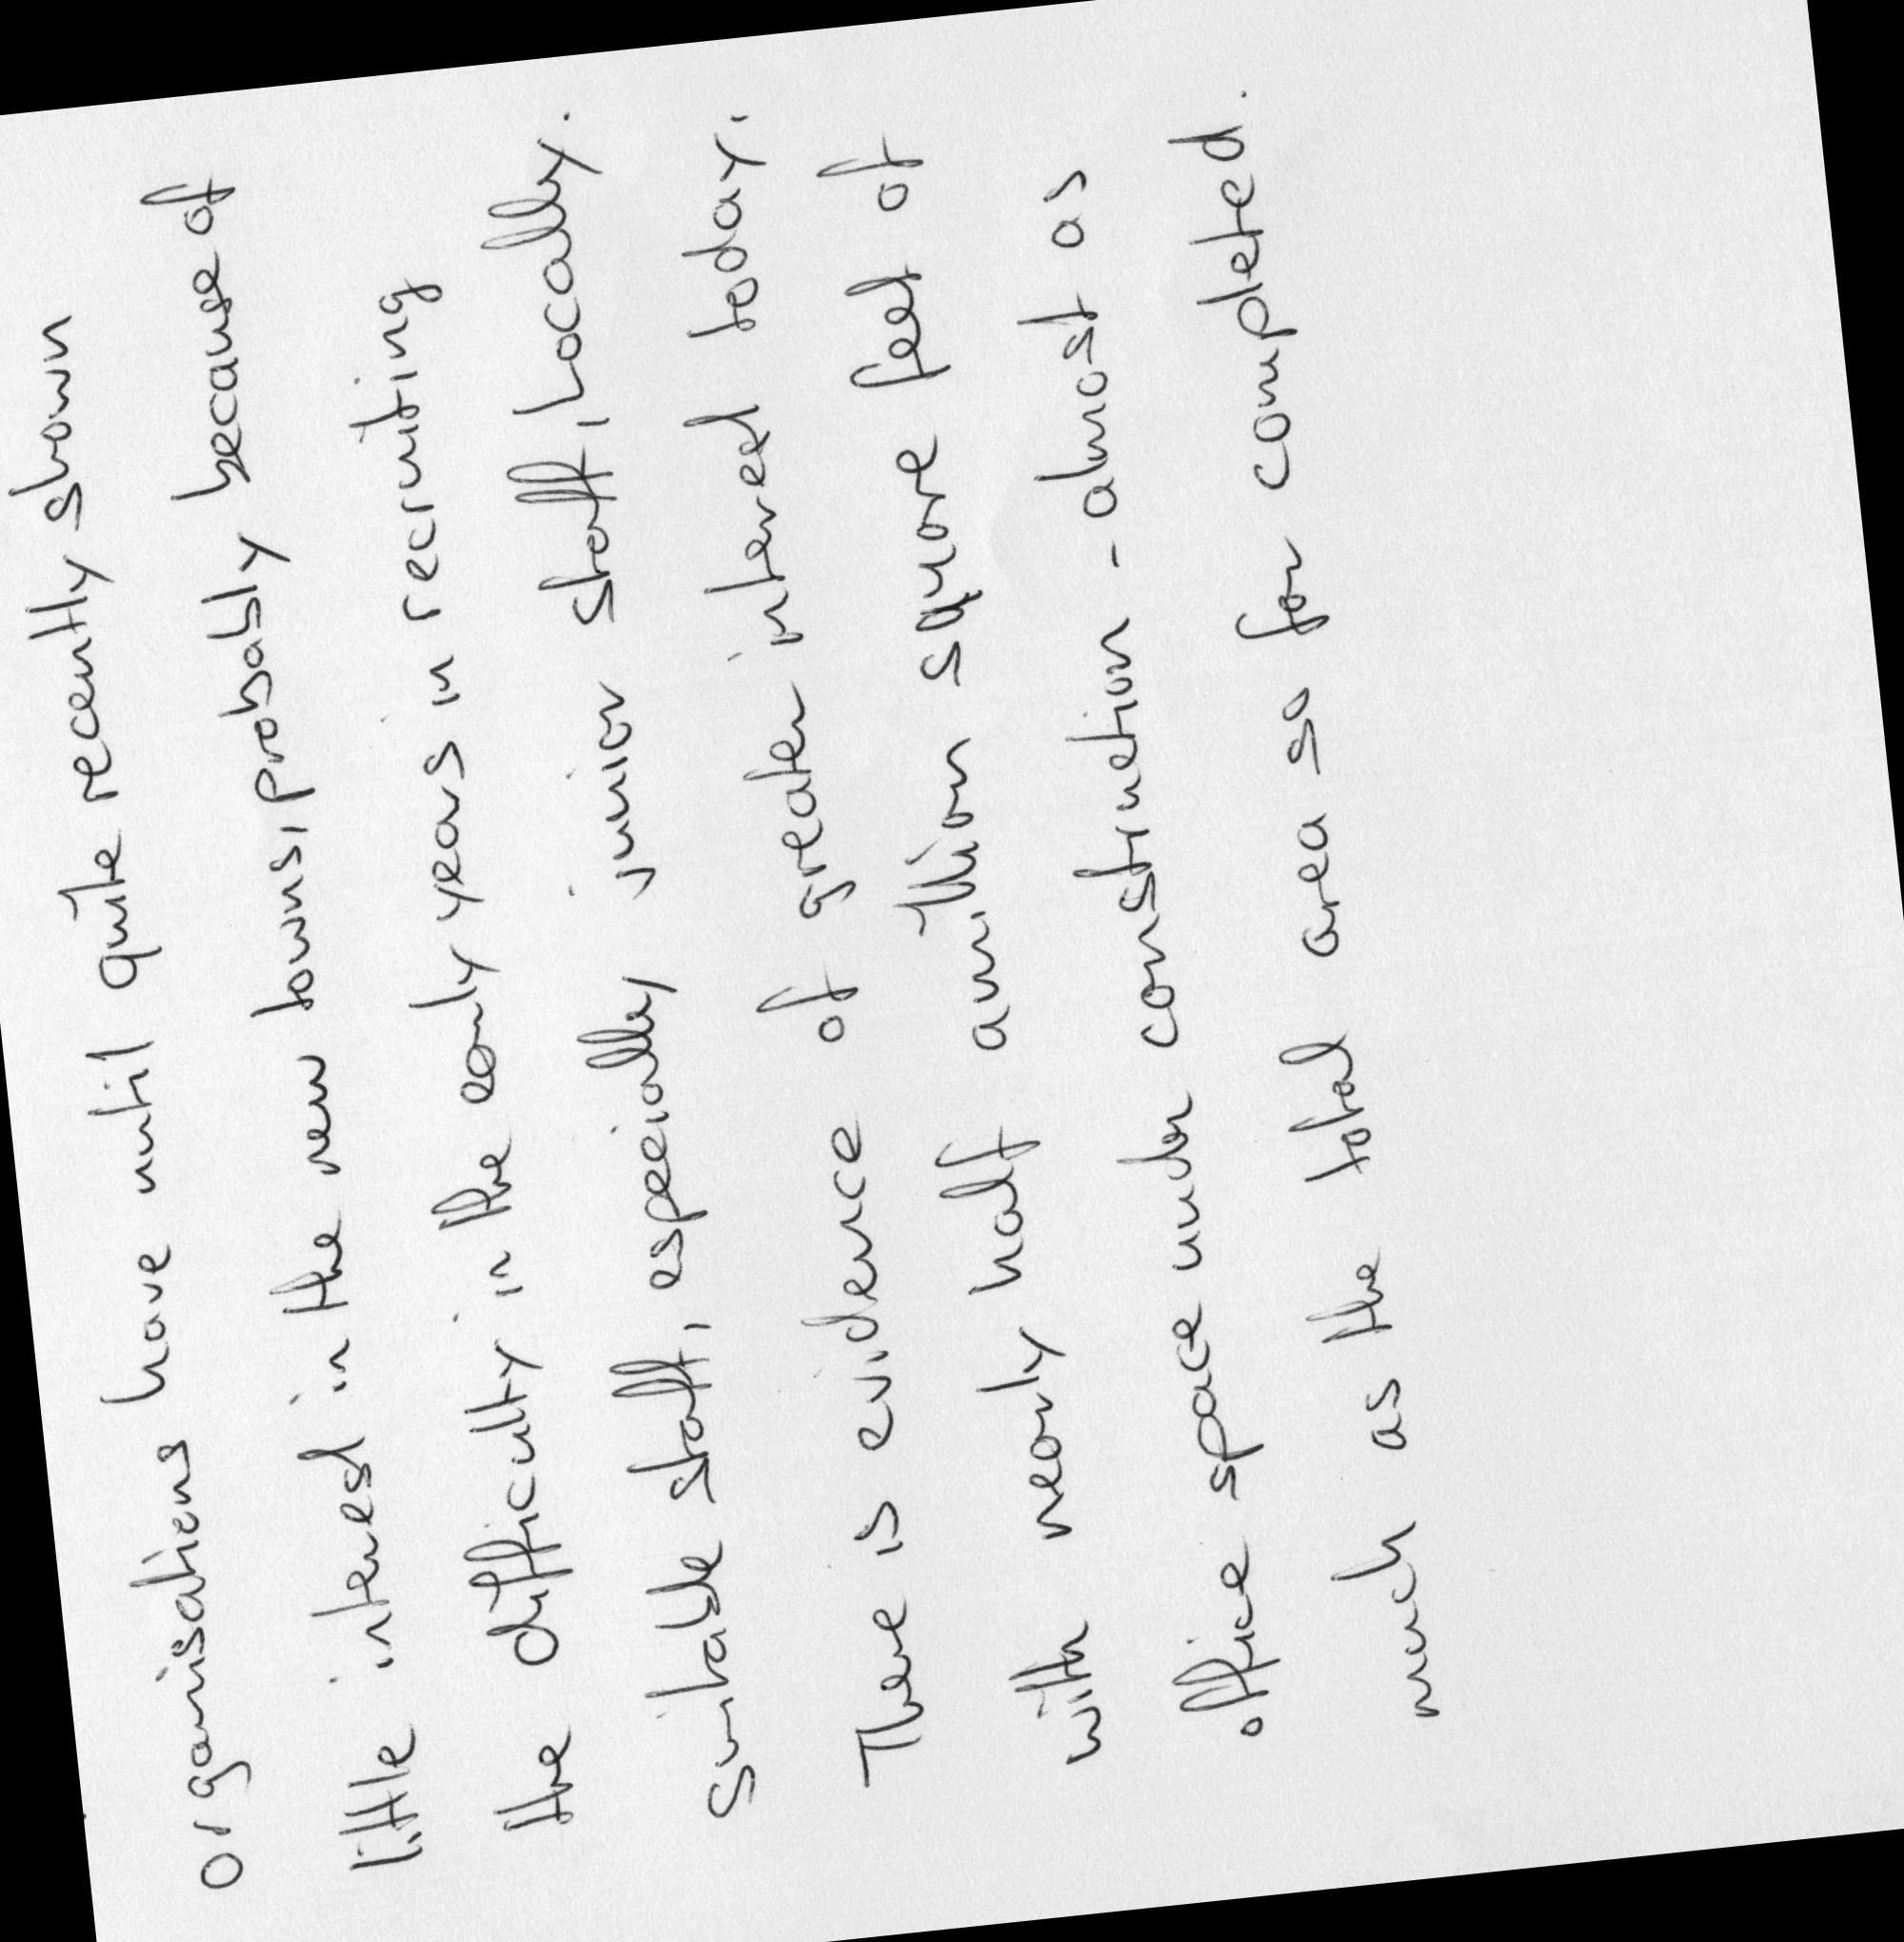 organisations have until quite recently shown
little interest in the new towns, probably because of
the difficulty in the early years in recruiting
suitable staff, especially junior staff, locally.
There is evidence of greater interest today.
with nearly half a million square feet of
office space under construction - almost as
much as the total area so far completed.